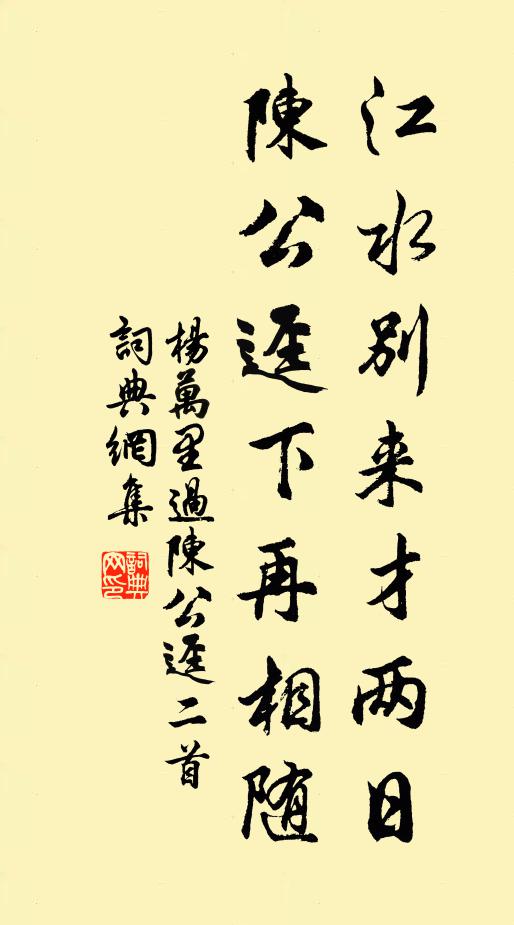 江水別来才两日
陳公逕下再相随
楊萬里過陳公逕二首
詞典網集
詞典网印